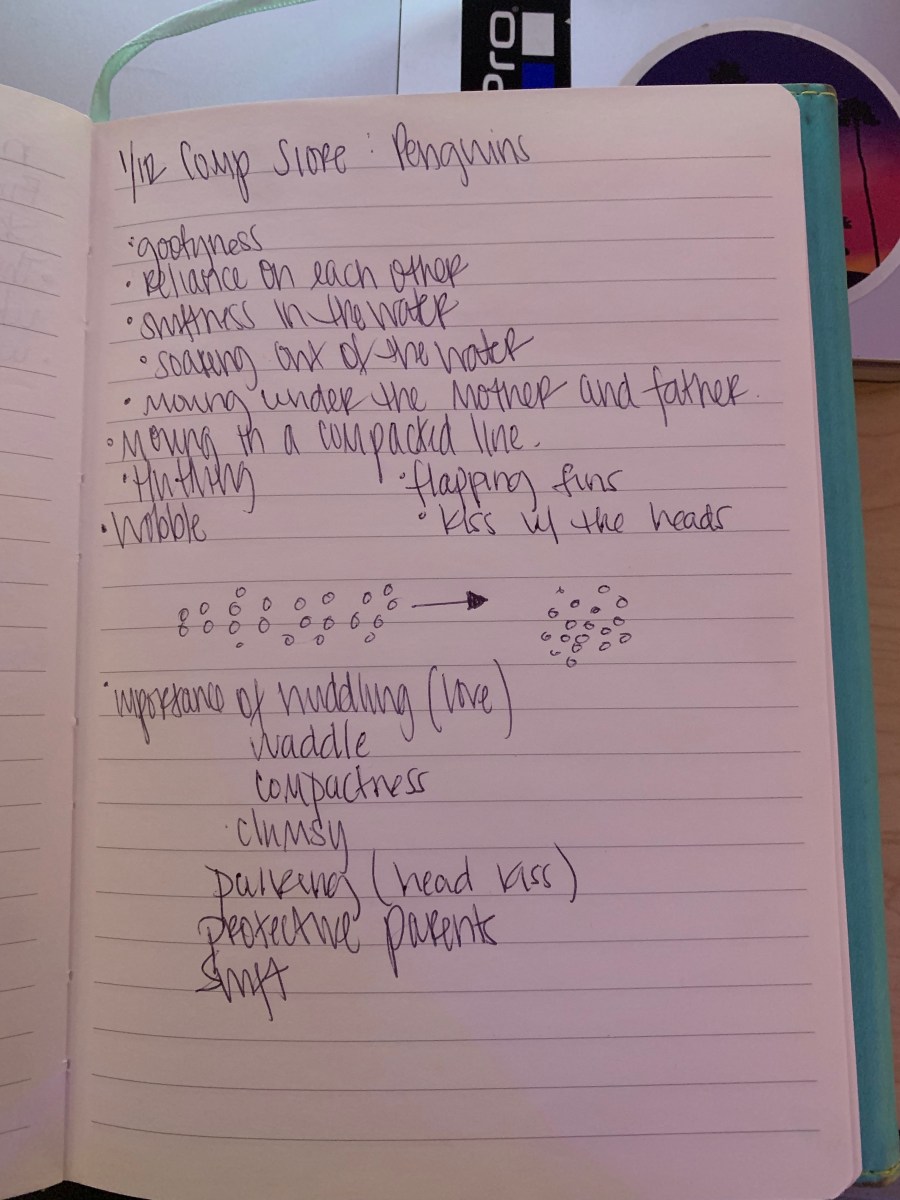 PRO
1/12 Comp Slore : Penguins
· goofyness
· reliance on each other
· swiftness in the water
· soaring out of the water
· moving under the mother and father.
· Moving in a compacted line.
· flapping fins
· wobble · kiss w/ the heads
· importance of huddling (love)
waddle
compactness
· clumsy
(head kiss)
protective parents
swift